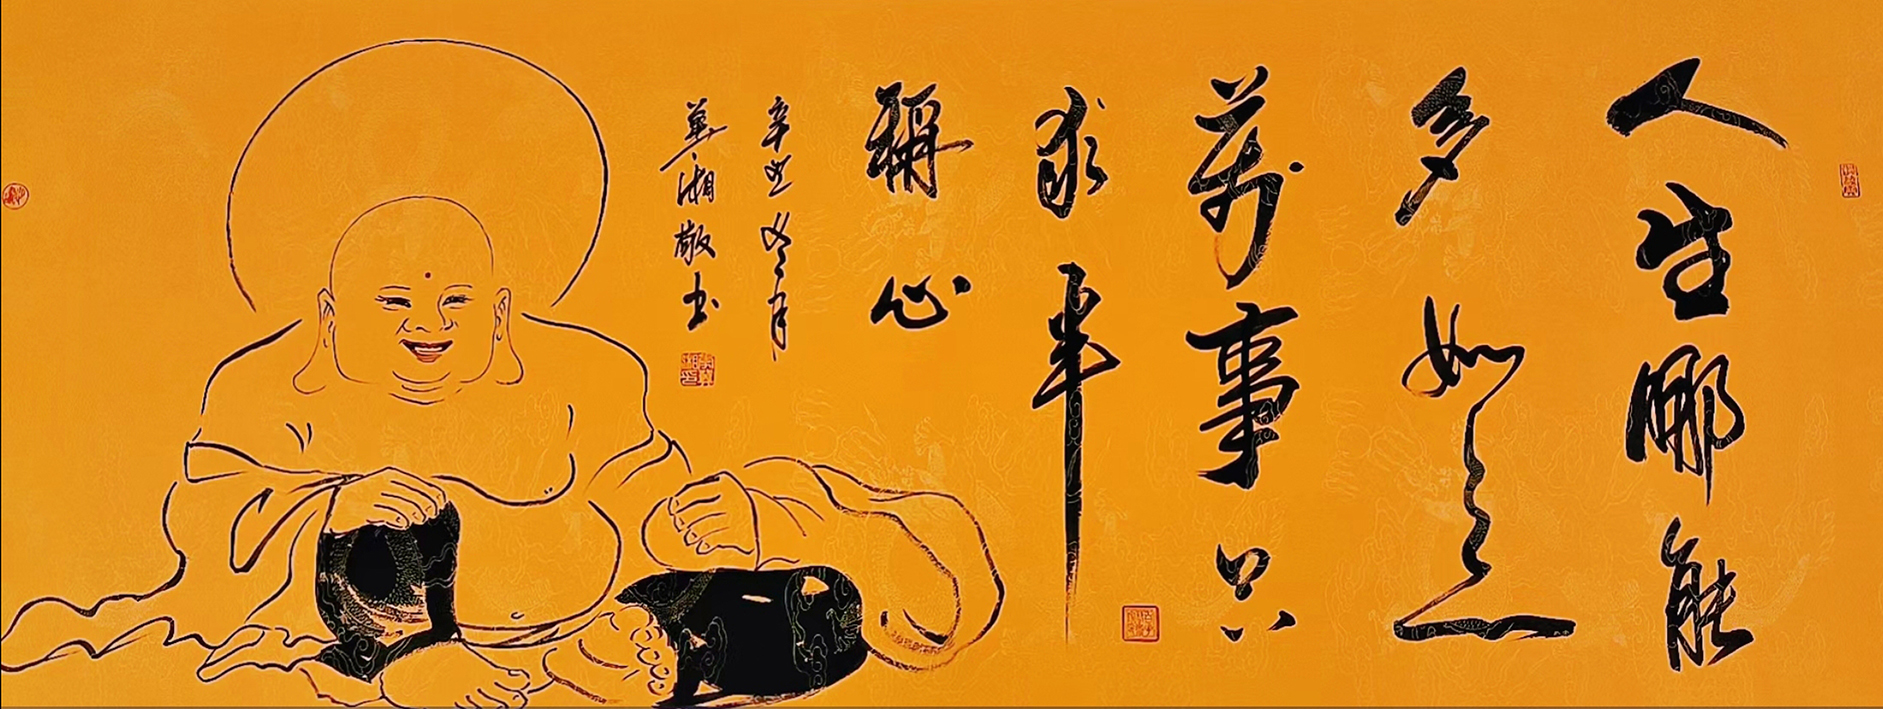 人生哪能
多如意
萬事只
求半
稱心
辛丑冬月
湘敬书